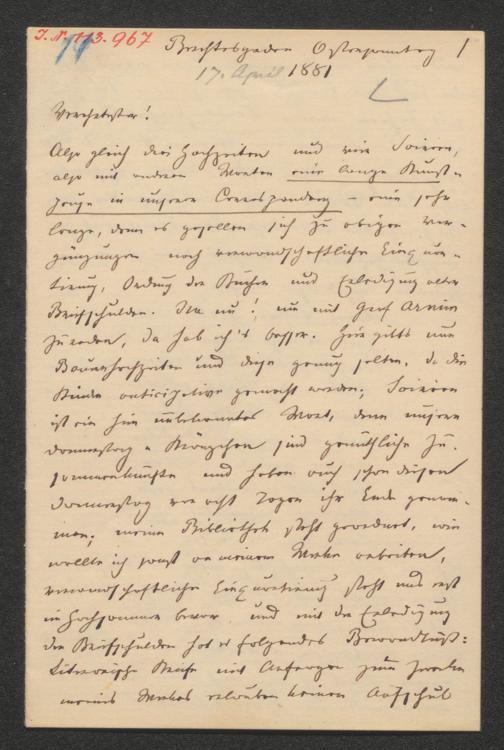 J. N. 113.967
Berchtesgaden Ostersonntag 1
17. April 1881
Verehrtester!
Also gleich drei Hochzeiten und vier Soiréen,
also mit anderen Worten eine lange Kunst-
pause in unserer Correspondenz – eine sehr
lange, denn es gesellen sich zu obigen Ver-
gnügungen noch verwandschaftliche Einquar-
tierung, Ordnung der Bücher und Erledigung alter
Briefschulden. Na nu! um mit Graf Arnim
zu reden, da hab ich's besser. Hier gibts nur
Bauernhochzeiten und diese genug selten, da die
Kinder anticipative gemacht werden; Soiréen
ist ein hier unbekanntes Wort, denn unsere
Donnerstag Kränzchen sind gemüthliche Zu-
sammenkünfte und haben auch schon diesen
Donnerstag vor acht Tagen ihr Ende genom-
men; meine Bibliothek steht geordnet, wie
wollte ich sonst an meinem Werke arbeiten,
verwandschaftliche Einquartierung steht uns erst
im Hochsommer bevor und mit der Erledigung
der Briefschulden hat es folgendes Bewandtniß:
Literarische Briefe mit Anfragen zum Zwecke
meines Werkes erlauben keinen Aufschub